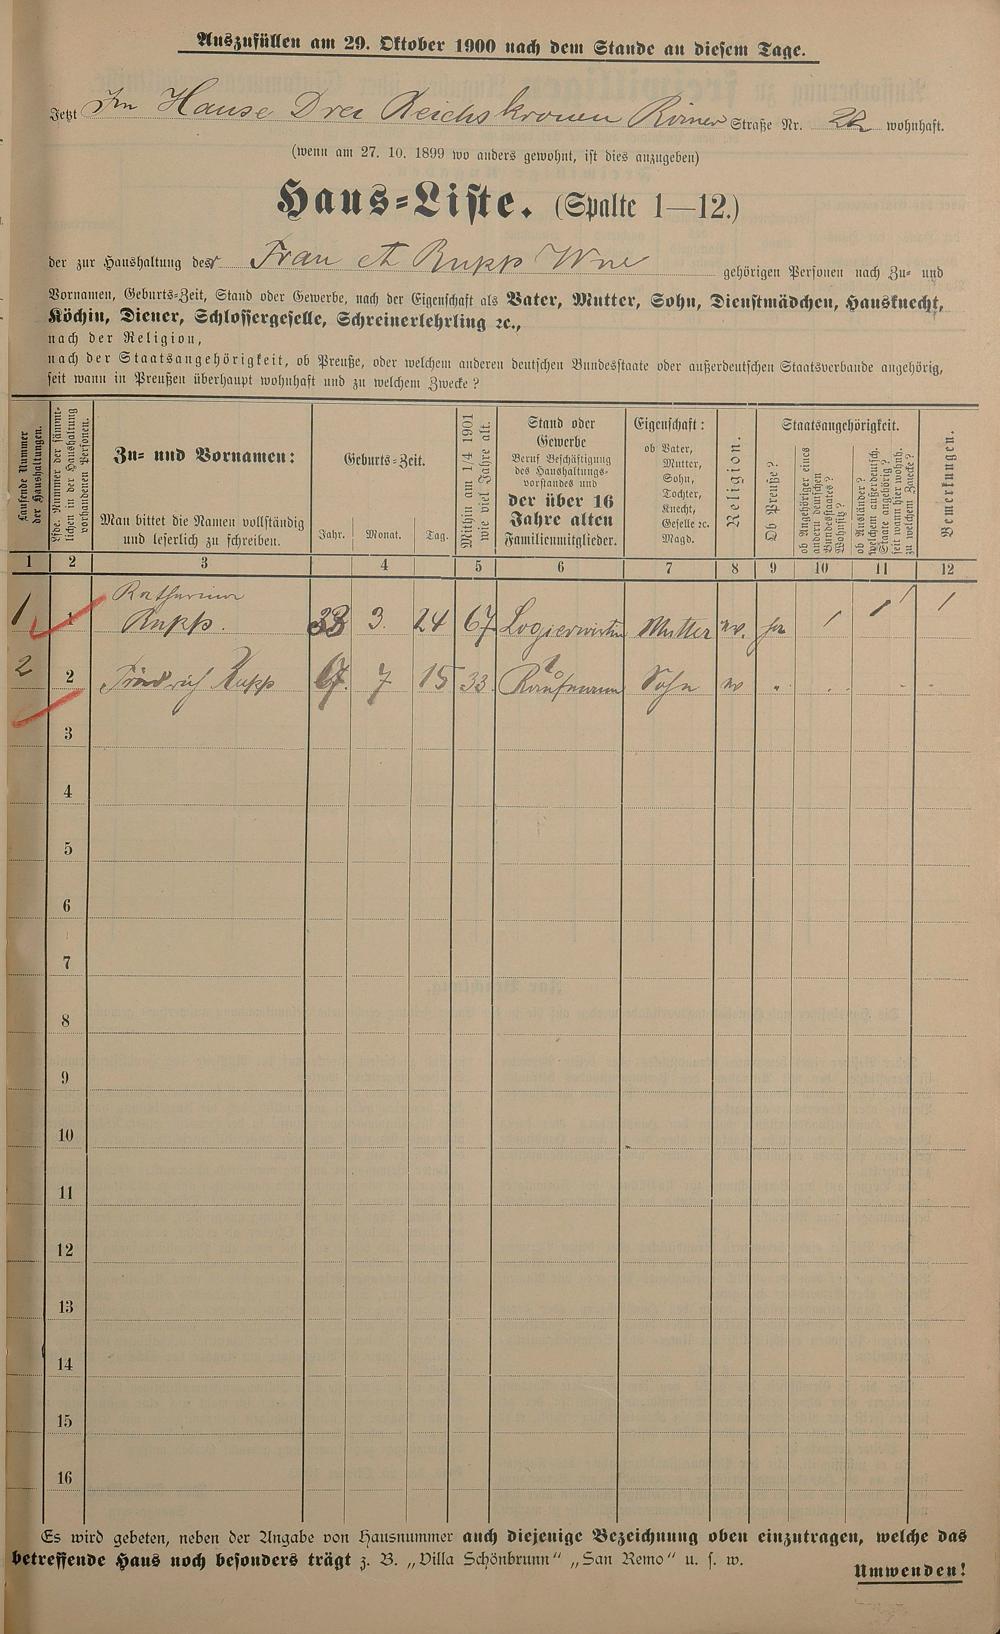 Auszufüllen am 29. Oktober 1900 nach dem Stande an diesem Tage.
Jetzt Im Hause Drei Reichskronen Römer Straße Nr. 22 wohnhaft.
(wenn am 27. 10. 1899 wo anders gewohnt, ist dies anzugeben)
Haus-Liste. (Spalte 1—12.)
der zur Haushaltung der Frau A Rupp Wwe gehörigen Personen nach Zu- und
Vornamen, Geburts-Zeit, Stand oder Gewerbe, nach der Eigenschaft als Vater, Mutter, Sohn, Dienstmädchen, Hausknecht,
Köchin, Diener, Schlossergeselle, Schreinerlehrling ꝛc.,
nach der Religion,
nach der Staatsangehörigkeit, ob Preuße, oder welchem anderen deutschen Bundesstaate oder außerdeutschen Staatsverbande angehörig,
seit wann in Preußen überhaupt wohnhaft und zu welchem Zwecke?
Laufende Nummer
der Haushaltungen.
Lfde. Nummer der sämmt-
lichen in der Haushaltung
vorhandenen Personen.
Zu- und Vornamen:
Man bittet die Namen vollständig
und leserlich zu schreiben.
Geburts-Zeit.
Jahr. Monat. Tag.
Mithin am 1/4 1901
wie viel Jahre alt.
Stand oder
Gewerbe
Beruf Beschäftigung
des Haushaltungs-
vorstandes und
der über 16
Jahre alten
Familienmitglieder.
Eigenschaft:
ob Vater,
Mutter,
Sohn,
Tochter,
Knecht,
Geselle ꝛc.
Magd.
Religion.
Staatsangehörigkeit.
Ob Preuße?
ob Angehöriger eines
andern deutschen
Bundesstaates?
Wohnsitz?
ob Ausländer?
welchem außerdeutsch.
Staate angehörig?
seit wann hier wohnh.
zu welchem Zwecke?
Bemerkungen.
1 2 3 4 5 6 7 8 9 10 11 12
Katharina
1 1 Rupp. 33 3. 24 67 Logierwirtin Mutter ev. ja / / /
2 2 Friedrich Rupp 67. 7 15 33. Kaufmann Sohn ev " . . - -
3
4
5
6
7
8
9
10
11
12
13
14
15
16
Es wird gebeten, neben der Angabe von Hausnummer auch diejenige Bezeichnung oben einzutragen, welche das
betreffende Haus noch besonders trägt z. B. „Villa Schönbrunn“ „San Remo“ u. s. w.
Umwenden!